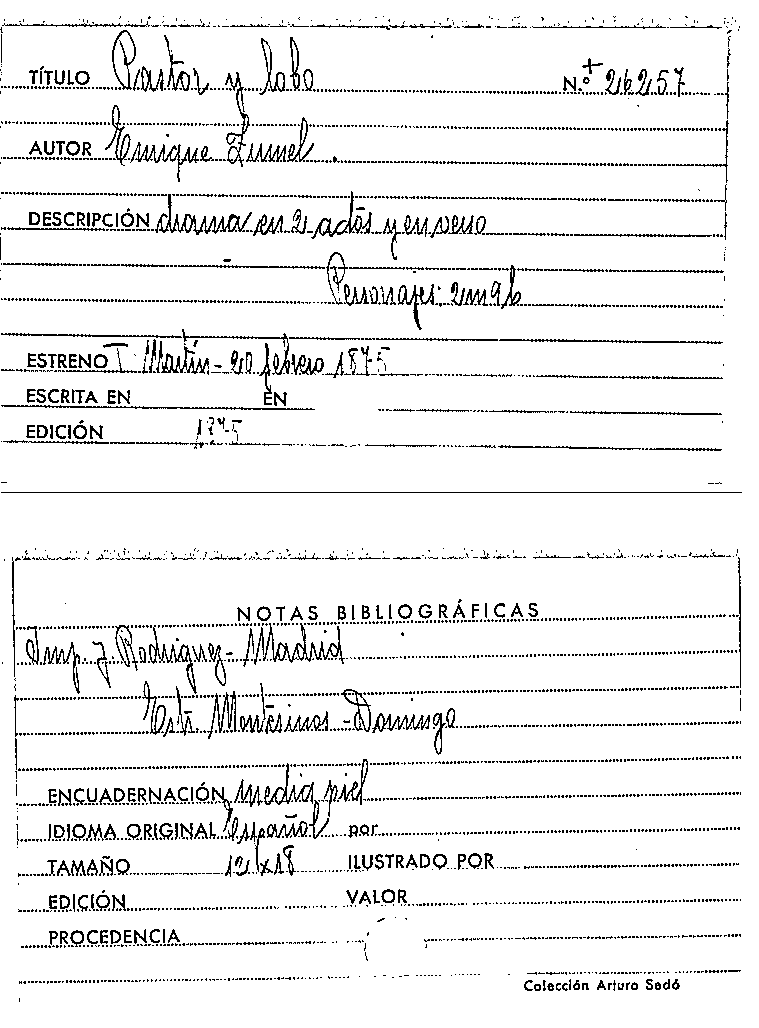 TÍTULO Pastor y lobo N.º + 26257
AUTOR Enrique Zumel.
DESCRIPCIÓN drama en 2 actos y en verso
Personajes: 2m9h
ESTRENO T. Martín - 20 febrero 1875
ESCRITA EN EN
EDICIÓN 1875
NOTAS BIBLIOGRÁFICAS
Imp. J. Rodriguez - Madrid
Estr. Montesinos - Domingo
ENCUADERNACIÓN media piel
IDIOMA ORIGINAL español por
TAMAÑO 12 x 18 ILUSTRADO POR
EDICIÓN VALOR
PROCEDENCIA
Colección Arturo Sedó